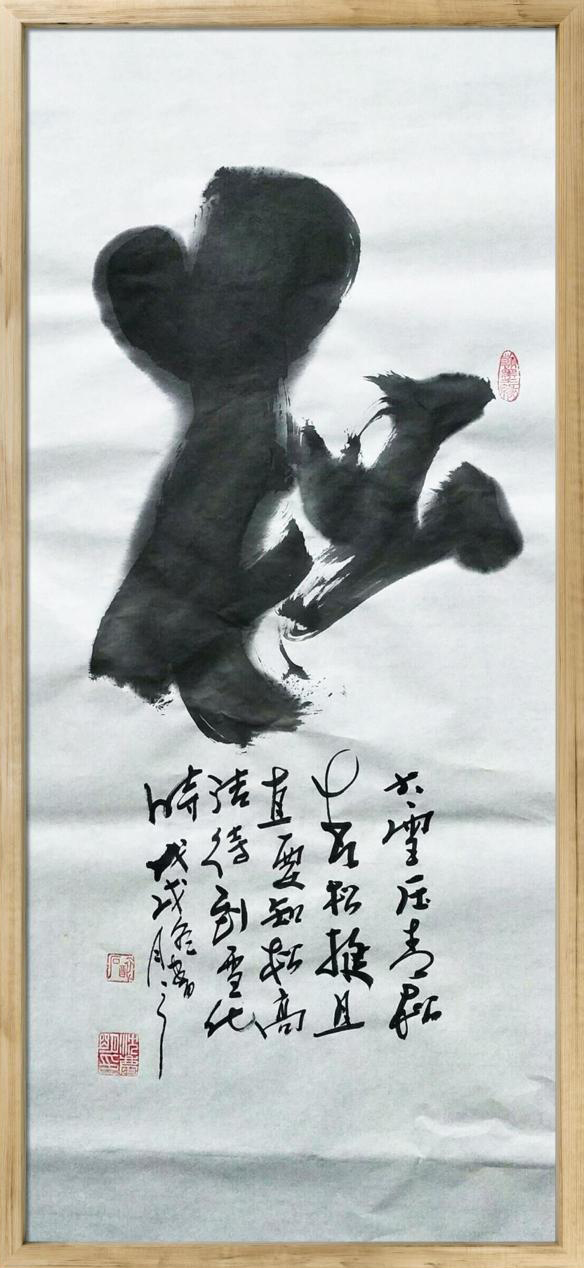 松
大雪压青松
青松挺且
直要知松高
洁待到雪化
時 戊戌